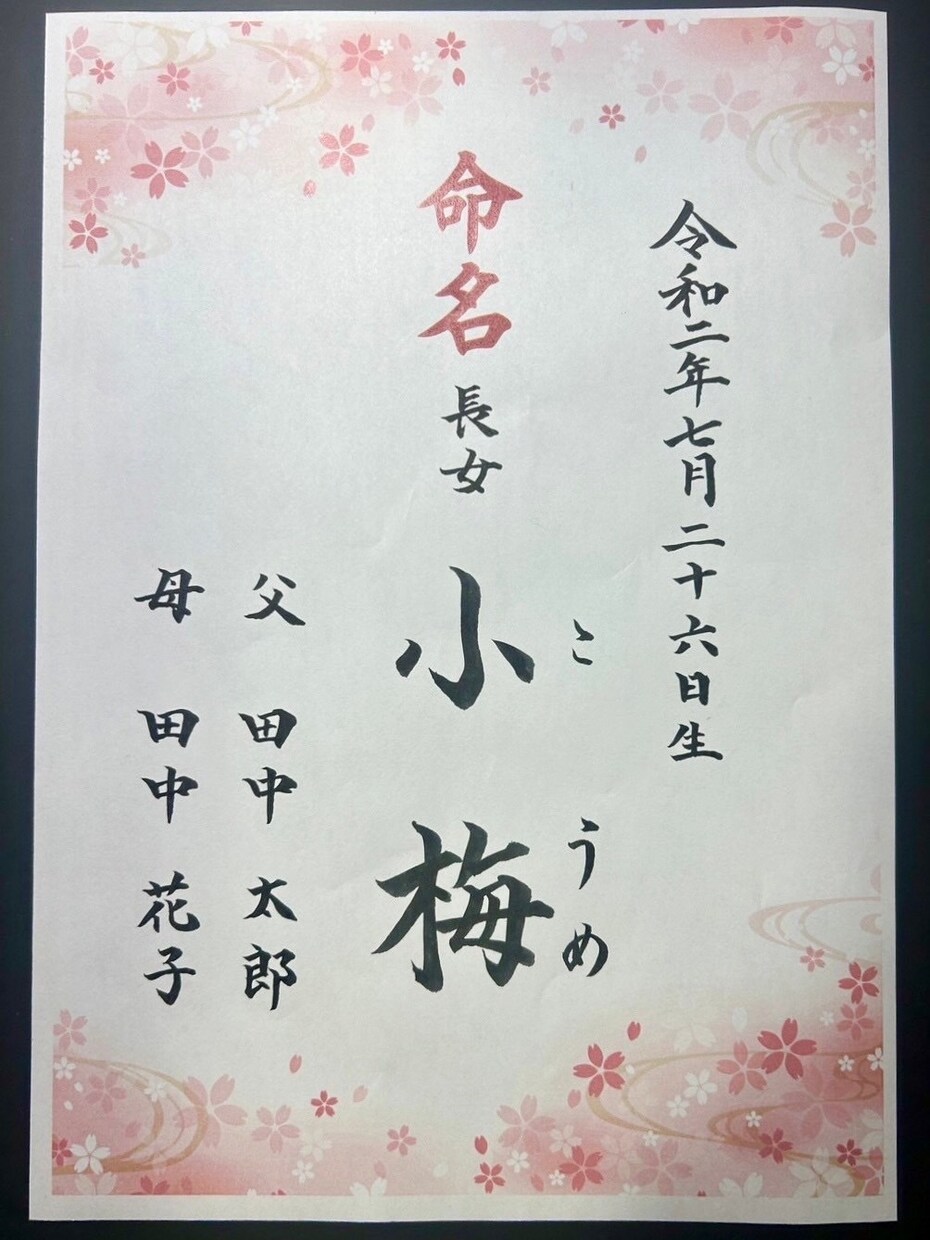 令和二年七月二十六日生
命名 長女 小梅
こうめ
父 田中 太郎
母 田中 花子